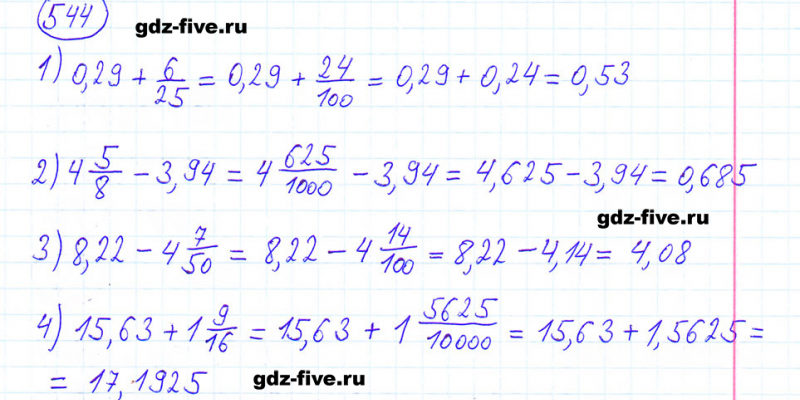 544
gdz-five.ru
1) 0,29 + 6/25 = 0,29 + 24/100 = 0,29 + 0,24 = 0,53
2) 4 5/8 - 3,94 = 4 625/1000 - 3,94 = 4,625 - 3,94 = 0,685
gdz-five.ru
3) 8,22 - 4 7/50 = 8,22 - 4 14/100 = 8,22 - 4,14 = 4,08
4) 15,63 + 1 9/16 = 15,63 + 1 5625/10000 = 15,63 + 1,5625 =
= 17,1925
gdz-five.ru